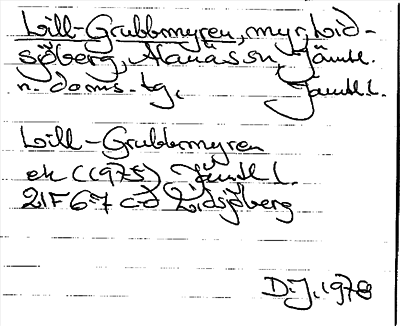 Lill-Grubbmyren, myr, Lid-
sjöberg, Alanäs sn, Jämtl.
n. doms. tg, Jämtl. l.
Lill-Grubbmyren
ek (1975) Jämtl l.
21F 67 cd Lidsjöberg
D.J. 1978